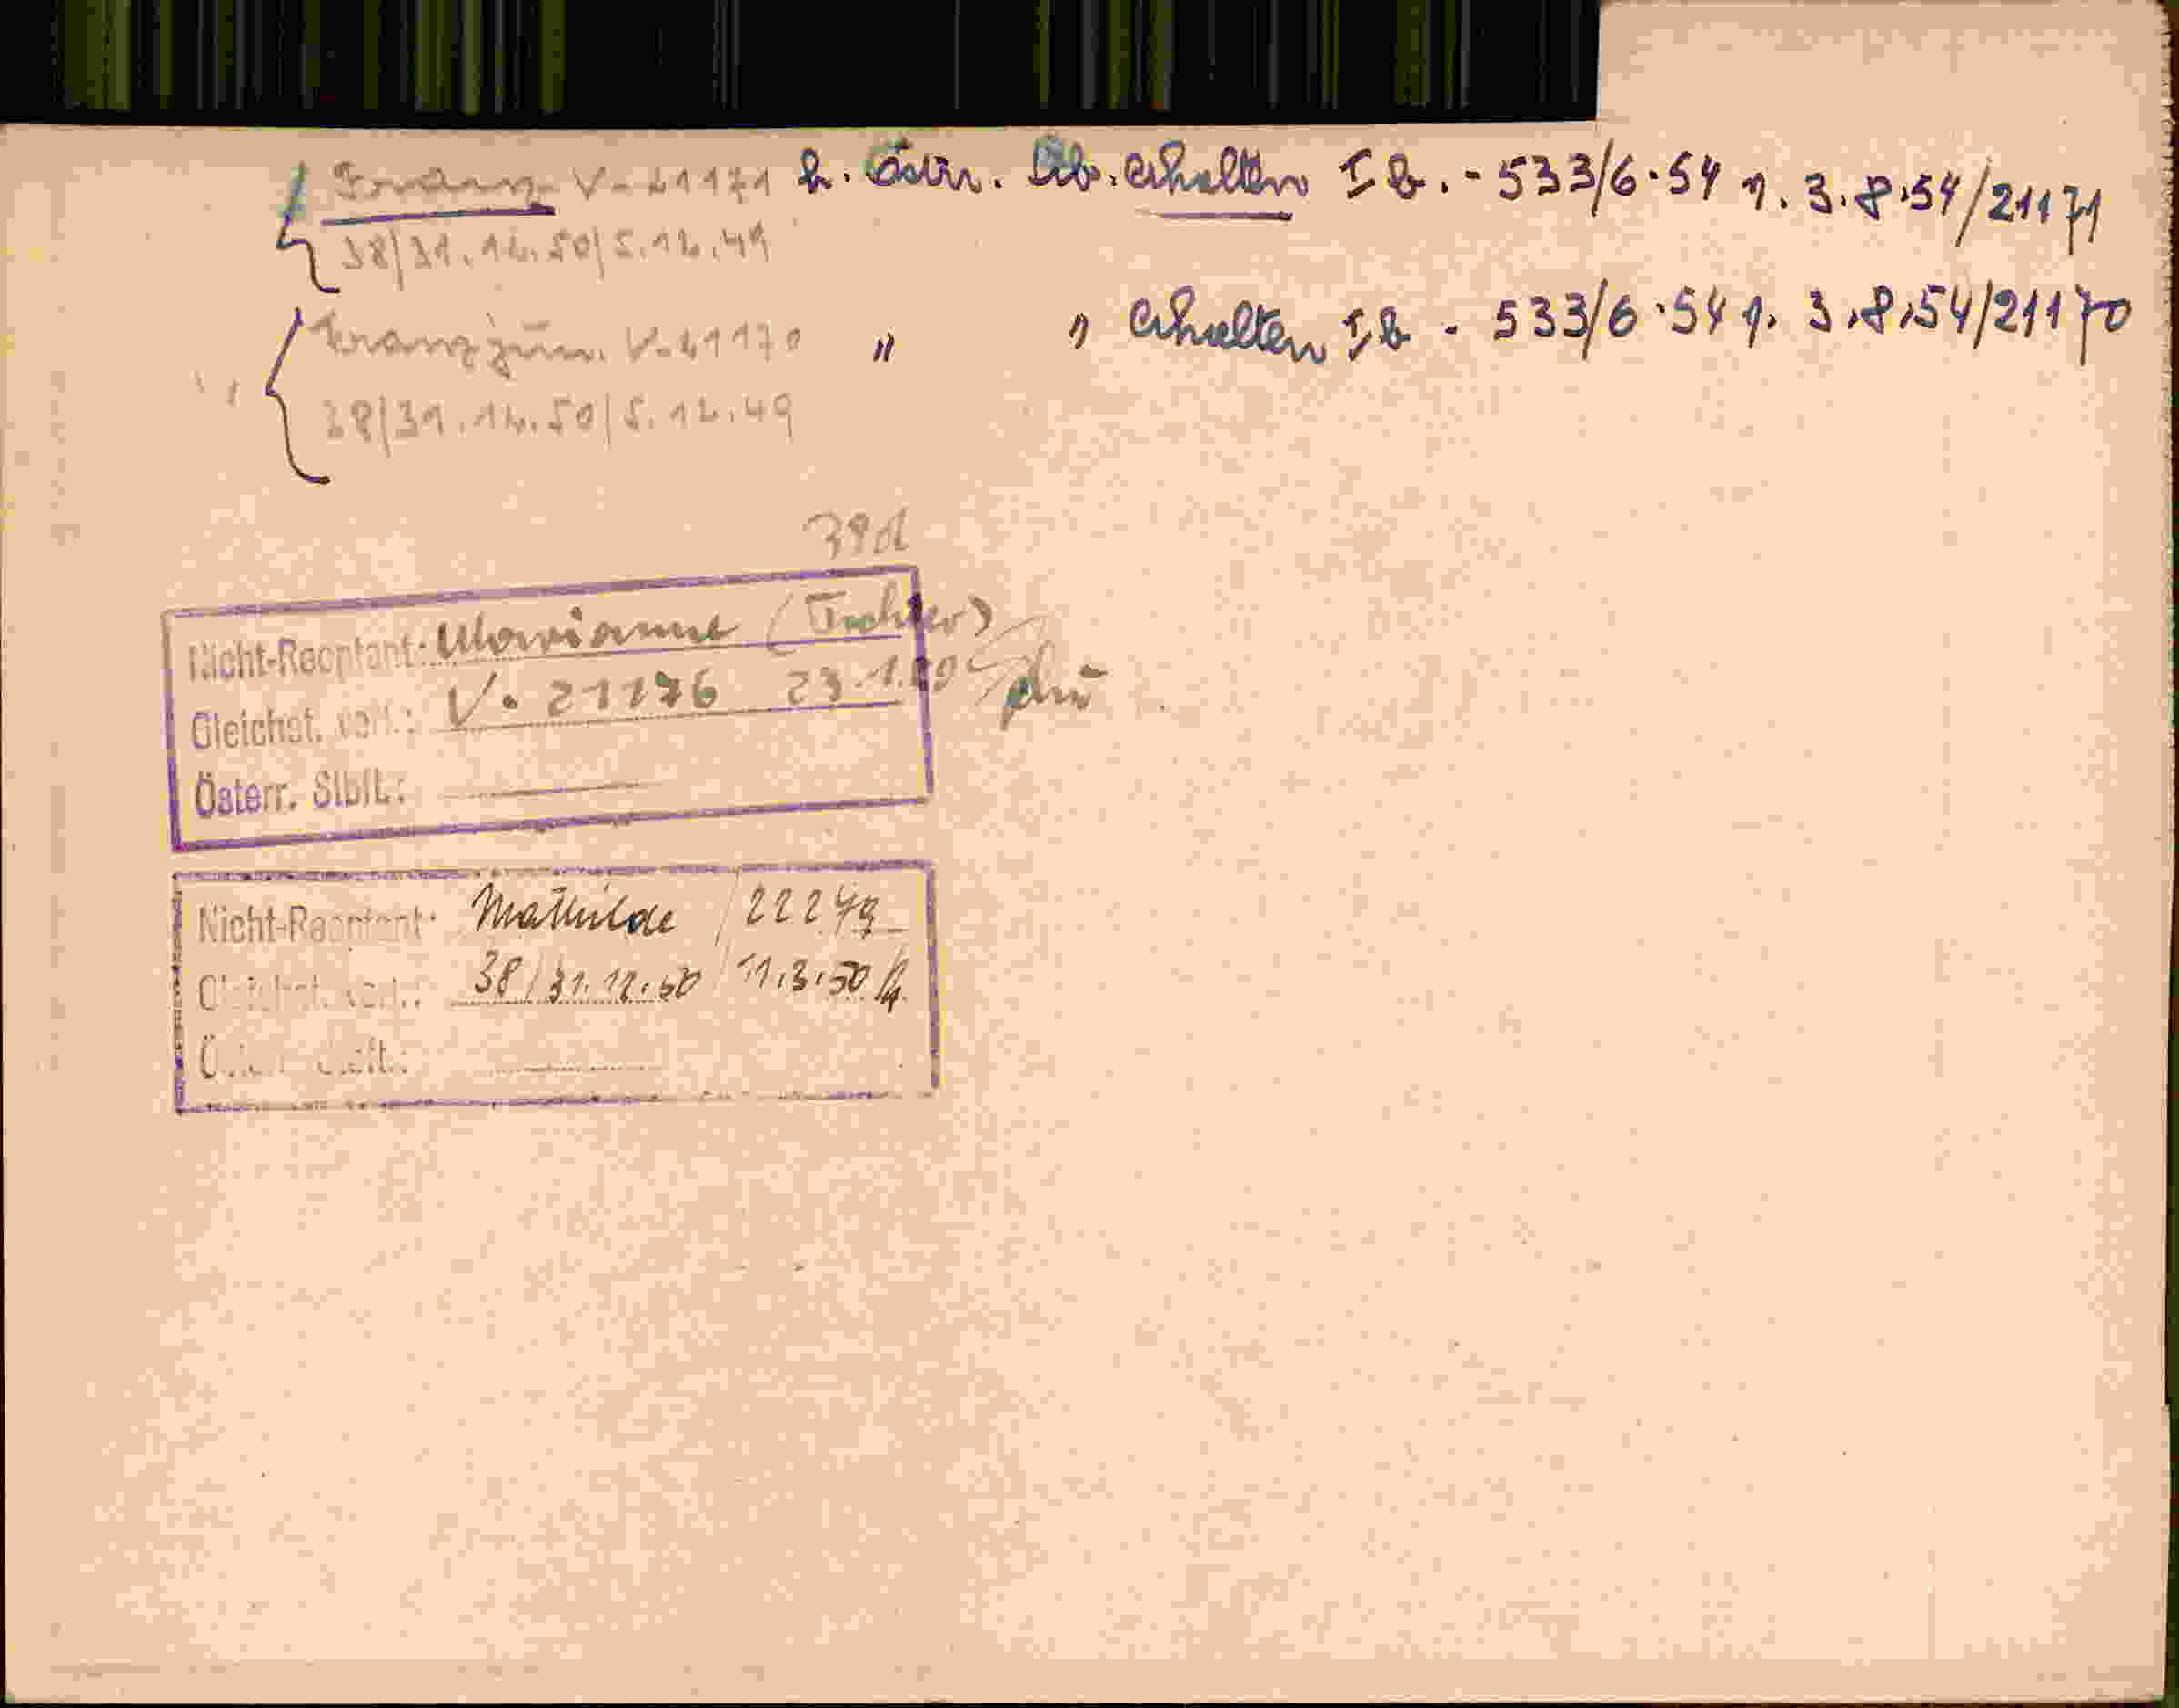 Franz V-21171 h. Östr. Stb. erhalten Ib. - 533/6.54 v. 3.8.54/21171
38/31.12.50/5.12.49
Franz jun. V-21170 " " erhalten Ib - 533/6.54 v. 3.8.54/21170
38/31.12.50/5.12.49
39d
Nicht-Reoptant: Marianne (Tochter)
Gleichst. verl.: V. 21176 23.1.50
Österr. Stblt.:
Nicht-Reoptant: Mathilde /22279
Gleichst. verl.: 38/31.12.50/11.3.50
Österr. Stblt.: